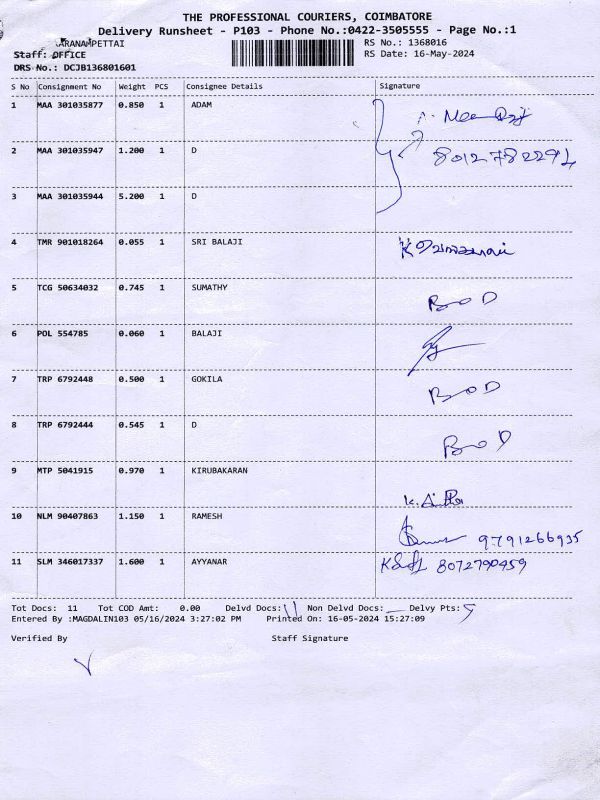 THE PROFESSIONAL COURIERS, COIMBATORE
Delivery Runsheet - P103 - Phone No.:0422-3505555 - Page No.:1
KARANAMPETTAI
Staff: OFFICE
DRS No.: DCJB136801601
RS No.: 1368016
RS Date: 16-May-2024
S No Consignment No Weight PCS Consignee Details Signature
1 MAA 301035877 0.850 1 ADAM
2 MAA 301035947 1.200 1 D 8012782294
3 MAA 301035944 5.200 1 D
4 TMR 901018264 0.055 1 SRI BALAJI
5 TCG 50634032 0.745 1 SUMATHY BOD
6 POL 554785 0.060 1 BALAJI
7 TRP 6792448 0.500 1 GOKILA BOD
8 TRP 6792444 0.545 1 D BOD
9 MTP 5041915 0.970 1 KIRUBAKARAN
10 NLM 90407863 1.150 1 RAMESH 9791266935
11 SLM 346017337 1.600 1 AYYANAR 8072790459
Tot Docs: 11 Tot COD Amt: 0.00 Delvd Docs: 11 Non Delvd Docs: Delvy Pts:
Entered By :MAGDALIN103 05/16/2024 3:27:02 PM Printed On: 16-05-2024 15:27:09
Verified By Staff Signature